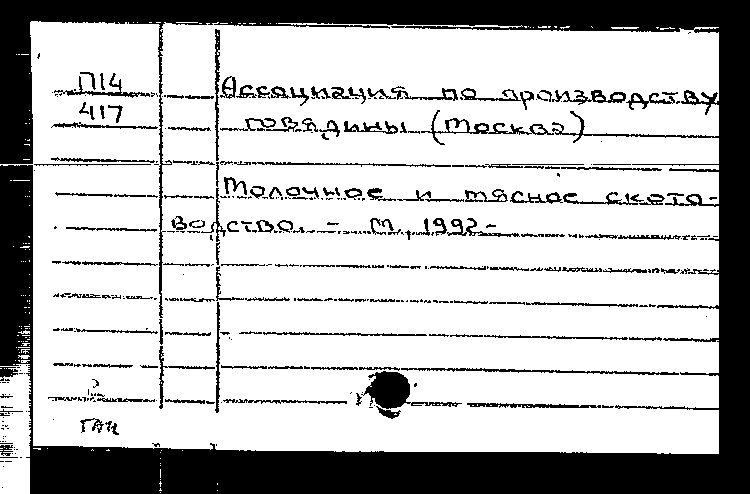 П14
417
Ассоциация по производству
говядины (Москва)
Молочное и мясное ското-
водство. - М., 1992-